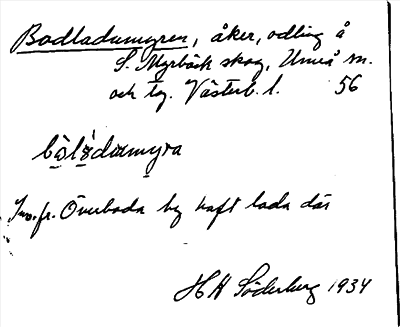 Bodladumyren, åker, odling å
S. Myrbäck skog, Umeå sn.
och tg. Västerb. l. 56
bòlàdumyra
Inv. fr. Överboda by haft lada där
H H Söderberg 1934